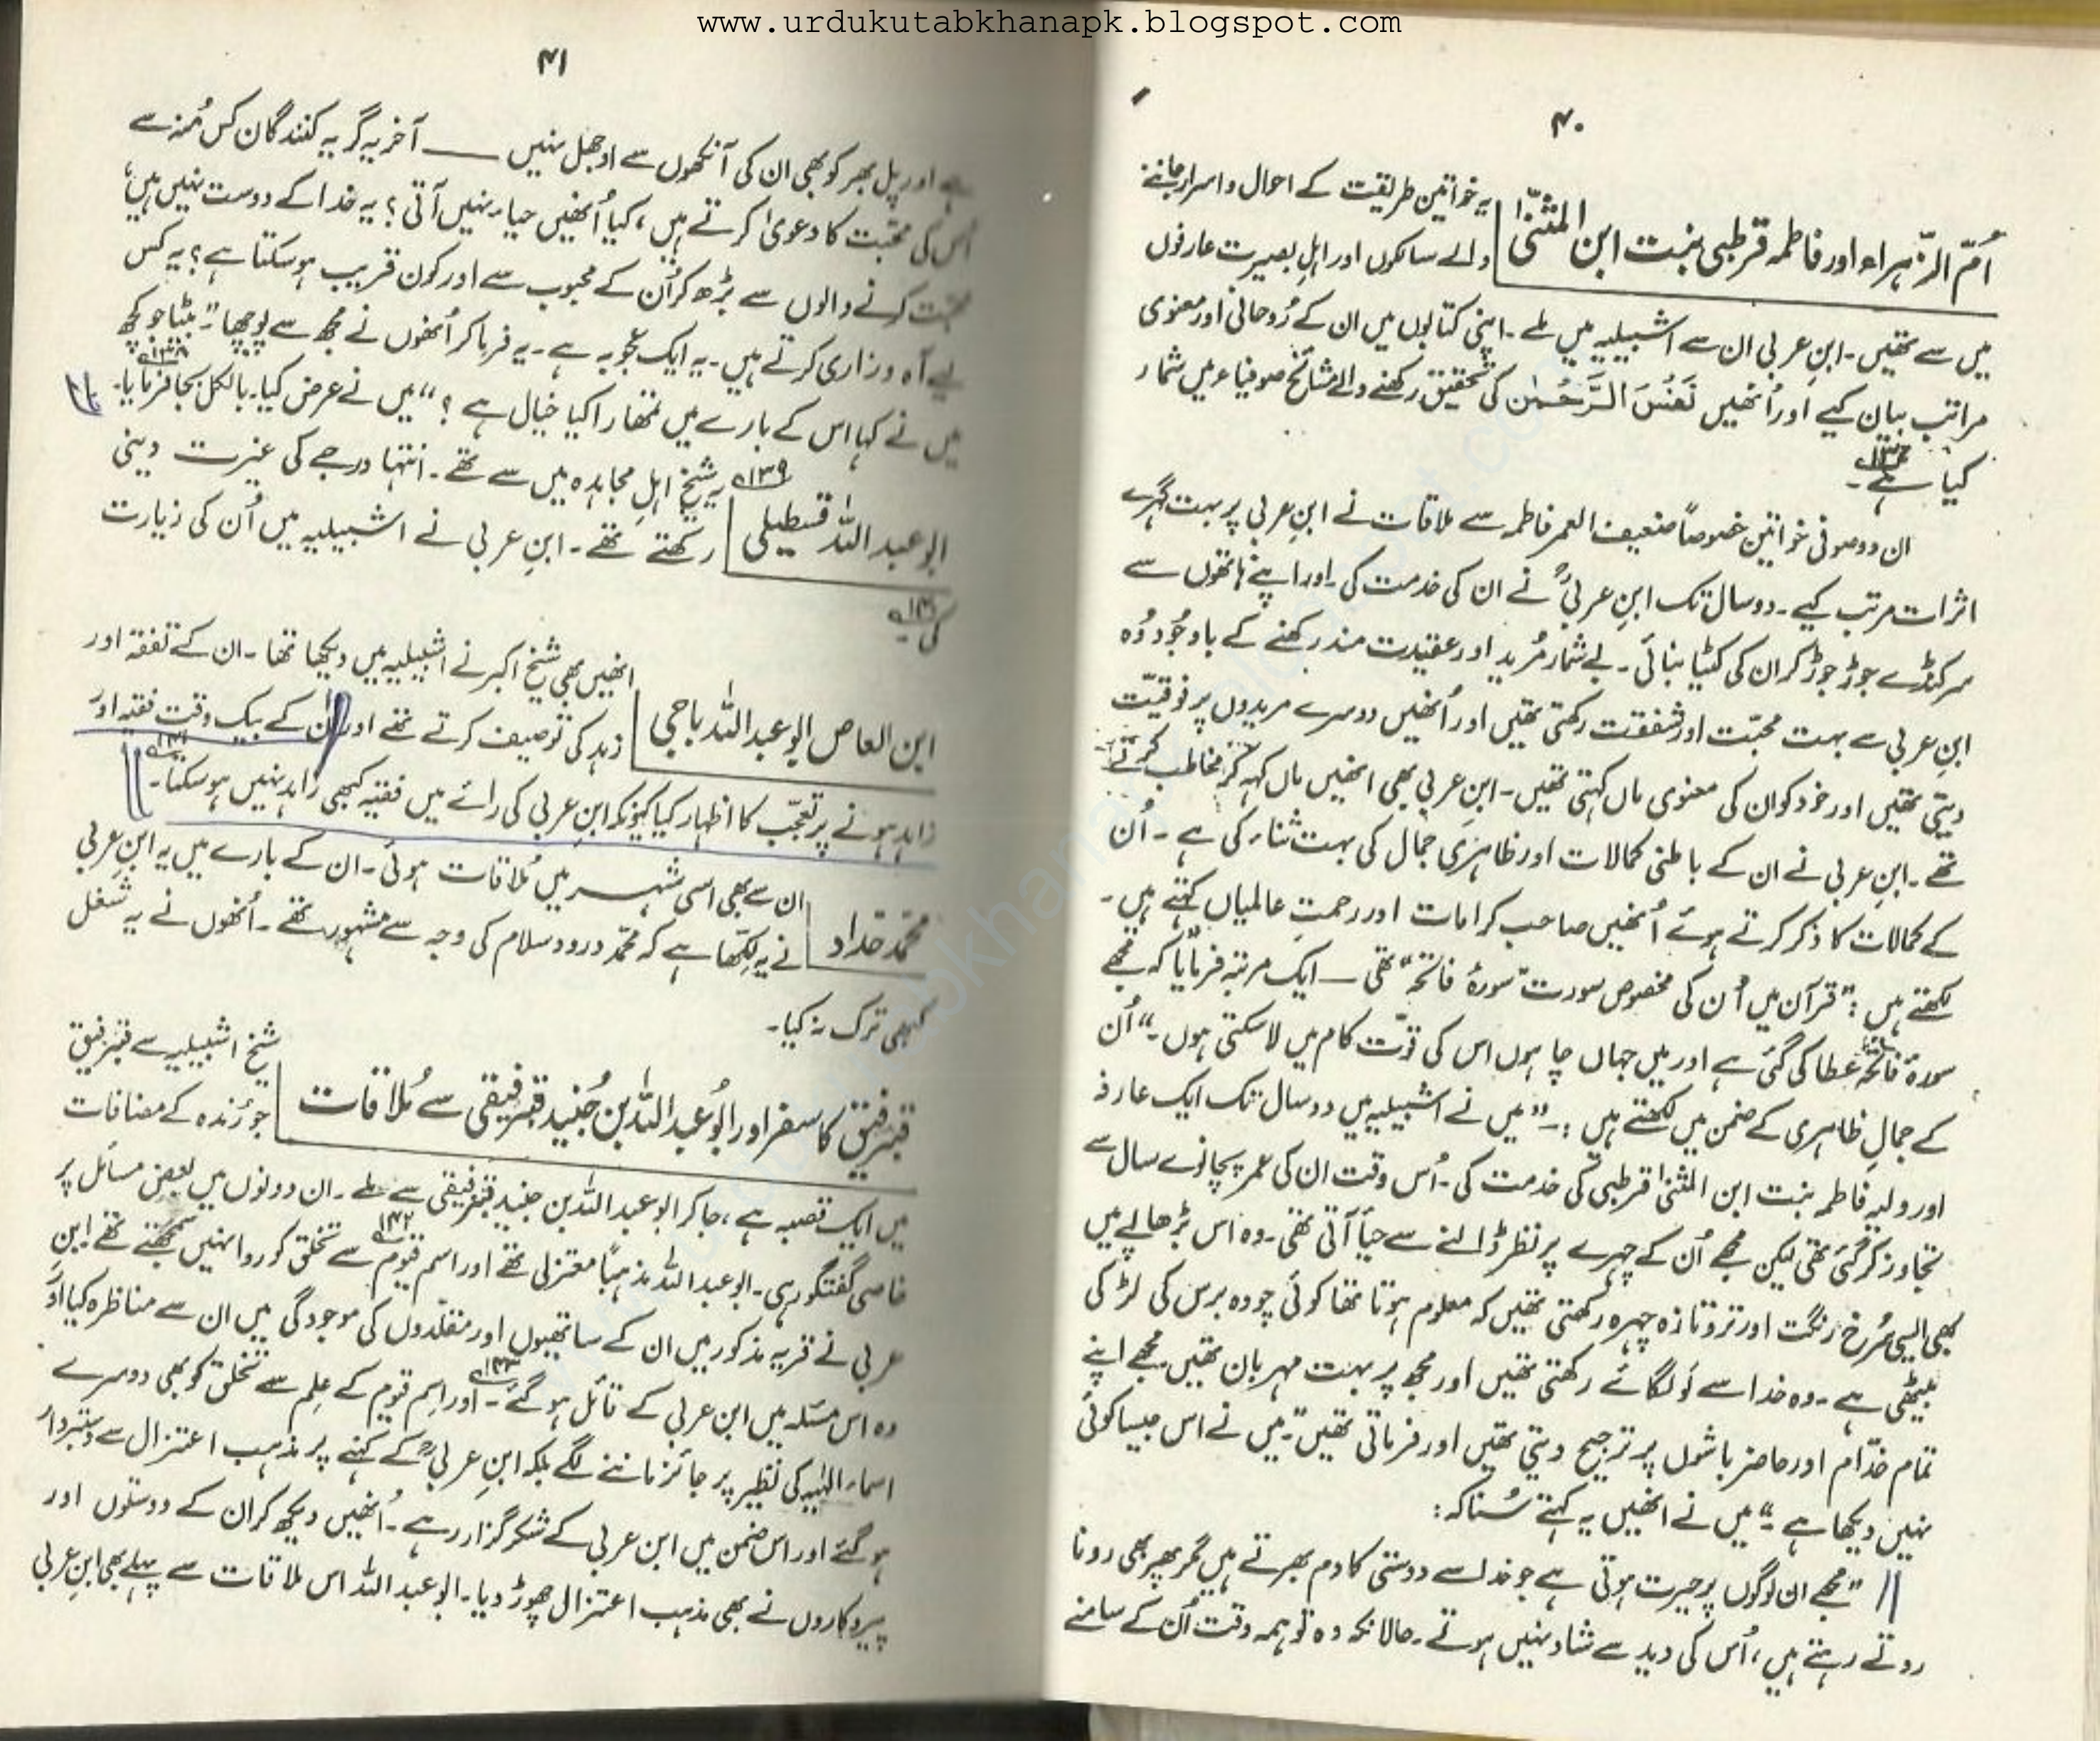 www.urdukutabkhanapk.blogspot.com
۴۰
اُمّ الزّہراء اور فاطمہ قرطبی بنت ابن المثنّٰی
یہ خواتین طریقت کے احوال و اسرار جاننے
والے سالکوں اور اہلِ بصیرت عارفوں
میں سے تھیں۔ ابنِ عربی ان سے اشبیلیہ میں ملے۔ اپنی کتابوں میں ان کے رُوحانی اور معنوی
مراتب بیان کیے اور اُنھیں نَفَسَ الرَّحْمٰن کی تحقیق رکھنے والے مشائخ صوفیاء میں شمار
کیا ہے۔
ان دو صوفی خواتین خصوصاً ضعیف العمر فاطمہ سے ملاقات نے ابنِ عربی پر بہت گہرے
اثرات مرتب کیے۔ دو سال تک ابنِ عربیؒ نے ان کی خدمت کی۔ اور اپنے ہاتھوں سے
سرکنڈے جوڑ جوڑ کر ان کی کٹیا بنائی۔ بے شمار مُرید اور عقیدت مند رکھنے کے باوجُود وُہ
ابنِ عربی سے بہت محبّت اور شفقت رکھتی تھیں اور اُنھیں دوسرے مریدوں پر فوقیّت
دیتی تھیں اور خود کو ان کی معنوی ماں کہتی تھیں۔ ابنِ عربی بھی انھیں ماں کہہ کر مخاطب کرتے
تھے۔ ابنِ عربی نے ان کے باطنی کمالات اور ظاہری جمال کی بہت ثناء کی ہے۔ اُن
کے کمالات کا ذکر کرتے ہوئے اُنھیں صاحب کرامات اور رحمتِ عالمیاں کہتے ہیں۔
لکھتے ہیں: "قرآن میں اُن کی مخصوص سورت "سورۂ فاتحہ" تھی — ایک مرتبہ فرمایا کہ مجھے
سورۂ فاتحہ عطا کی گئی ہے اور میں جہاں چاہوں اس کی قوّت کام میں لا سکتی ہوں۔" اُن
کے جمالِ ظاہری کے ضمن میں لکھتے ہیں:۔ "میں نے اشبیلیہ میں دو سال تک ایک عارفہ
اور ولیہ فاطمہ بنت ابن المثنیٰ قرطبی کی خدمت کی۔ اُس وقت ان کی عمر پچانوے سال سے
تجاوز کر گئی تھی لیکن مجھے اُن کے چہرے پر نظر ڈالنے سے حیا آتی تھی۔ وہ اس بڑھاپے میں
بھی ایسی سُرخ رنگت اور تروتازہ چہرہ رکھتی تھیں کہ معلوم ہوتا تھا کوئی چودہ برس کی لڑکی
بیٹھی ہے۔ وہ خدا سے لَو لگائے رکھتی تھیں اور مجھ پر بہت مہربان تھیں مجھے اپنے
تمام خدّام اور حاضر باشوں پر ترجیح دیتی تھیں اور فرماتی تھیں۔ میں نے اس جیسا کوئی
نہیں دیکھا ہے۔" میں نے انھیں یہ کہتے سُنا کہ:
"مجھے ان لوگوں پر حیرت ہوتی ہے جو خدا سے دوستی کا دم بھرتے ہیں مگر پھر بھی رونا
روتے رہتے ہیں، اُس کی دید سے شاد نہیں ہوتے۔ حالانکہ وہ تو ہمہ وقت اُن کے سامنے
۴۱
ہے اور پل بھر کو بھی ان کی آنکھوں سے اوجھل نہیں — آخر یہ گریہ کنندگان کس مُنہ سے
اُس کی محبّت کا دعویٰ کرتے ہیں، کیا اُنھیں حیاء نہیں آتی؟ یہ خدا کے دوست نہیں ہیں،
محبّت کرنے والوں سے بڑھ کر اُن کے محبوب سے اور کون قریب ہو سکتا ہے؟ یہ کس
لیے آہ و زاری کرتے ہیں۔ یہ ایک عجوبہ ہے۔ یہ فرما کر اُنھوں نے مجھ سے پوچھا۔ "بیٹا جو کچھ
میں نے کہا اس کے بارے میں تمھارا کیا خیال ہے؟" میں نے عرض کیا۔ بالکل بجا فرمایا۔ ۱۳۸
ابو عبد اللہ قسطیلی ۱۳۹
یہ شیخ اہلِ مجاہدہ میں سے تھے۔ انتہا درجے کی غیرت دینی
رکھتے تھے۔ ابنِ عربی نے اشبیلیہ میں اُن کی زیارت
کی۔ ۱۴۰
ابن العاص ابو عبد اللہ باجی
انھیں بھی شیخ اکبر نے اشبیلیہ میں دیکھا تھا۔ ان کے تفقہ اور
زہد کی توصیف کرتے تھے اور ان کے بیک وقت فقیہ اور
زاہد ہونے پر تعجّب کا اظہار کیا کیونکہ ابنِ عربی کی رائے میں فقیہ کبھی زاہد نہیں ہو سکتا۔ ۱۴۱
محمّد حدّاد
ان سے بھی اسی شہر میں مُلاقات ہوئی۔ ان کے بارے میں یہ ابنِ عربی
نے یہ لکھا ہے کہ محمّد درود و سلام کی وجہ سے مشہور تھے۔ اُنھوں نے یہ شغل
کبھی ترک نہ کیا۔
قبرفیق کا سفر اور ابُو عبد اللہ بن جُنید قبرفیقی سے مُلاقات
شیخ اشبیلیہ سے قبرفیق
جو رُندہ کے مضافات
میں ایک قصبہ ہے، جا کر ابو عبد اللہ بن جنید قبرفیقی سے ملے۔ ان دونوں میں بعض مسائل پر
خاصی گفتگو رہی۔ ابو عبد اللہ مذہباً معتزلی تھے اور اسم قیوم ۱۴۲ سے تخلق کو روا نہیں سمجھتے تھے ابنِ
عربی نے قریہ مذکور میں ان کے ساتھیوں اور مقلّدوں کی موجودگی میں ان سے مناظرہ کیا اور
وہ اس مسئلہ میں ابن عربی کے قائل ہو گئے۔ ۱۴۳ اور اسم قیوم کے علم سے تخلق کو بھی دوسرے
اسماء الٰہیہ کی نظیر پر جائز ماننے لگے بلکہ ابنِ عربیؒ کے کہنے پر مذہب اعتزال سے دستبردار
ہو گئے اور اس ضمن میں ابن عربی کے شکر گزار رہے۔ اُنھیں دیکھ کر ان کے دوستوں اور
پیروکاروں نے بھی مذہب اعتزال چھوڑ دیا۔ ابو عبد اللہ اس ملاقات سے پہلے بھی ابنِ عربی